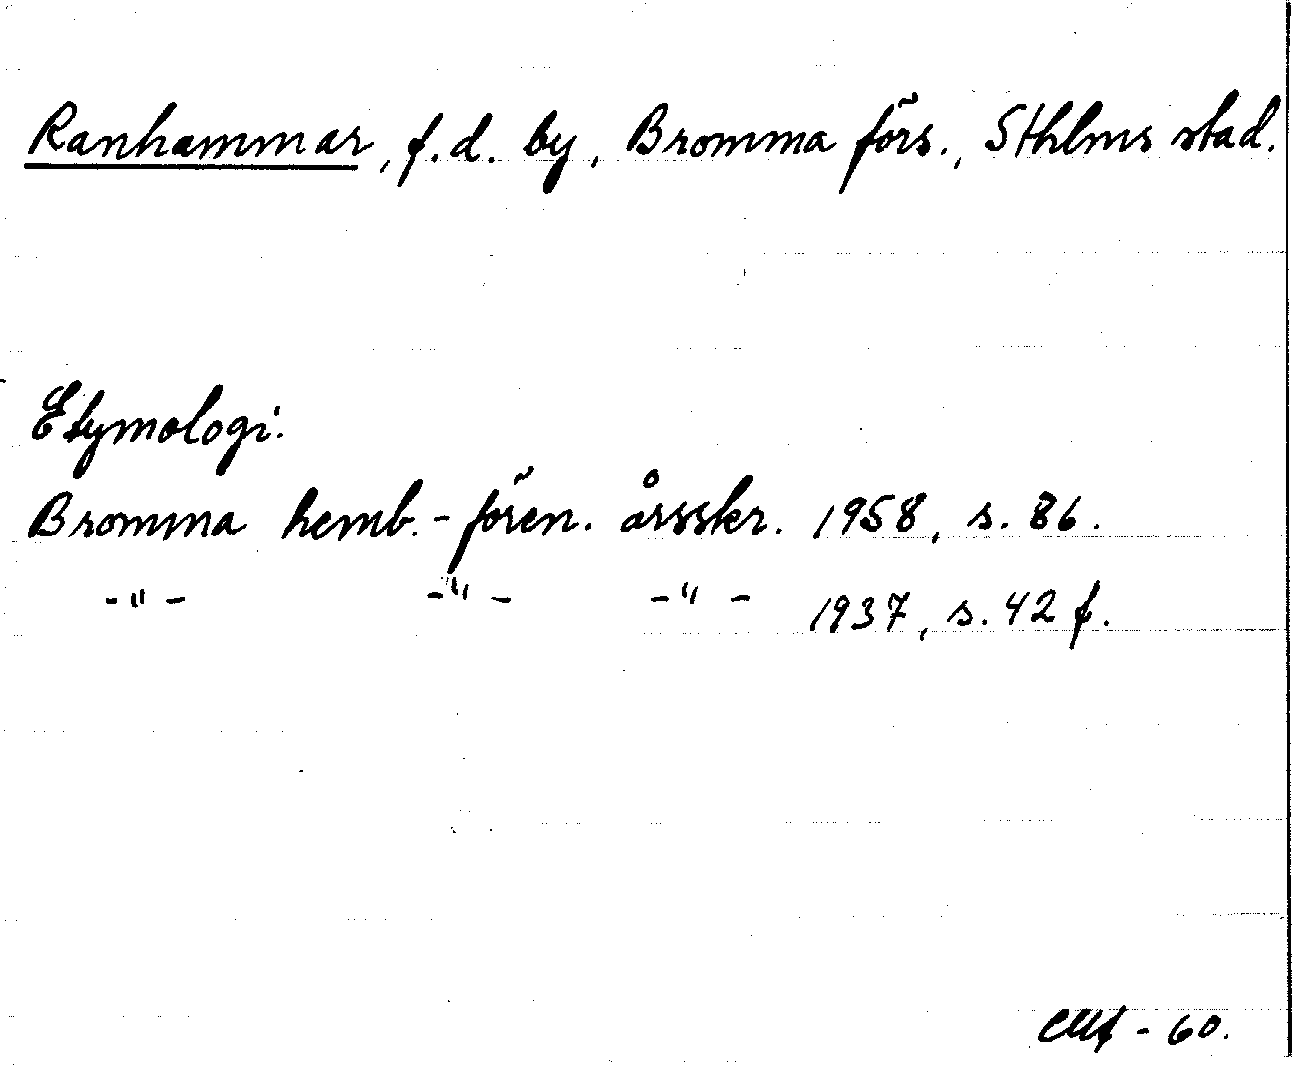 Ranhammar, f.d. by, Bromma förs., Sthlms stad.
Etymologi:
Bromma hemb.-fören. årsskr. 1958, s. 86.
-"- -"- -"- 1937, s. 42 f.
-60.